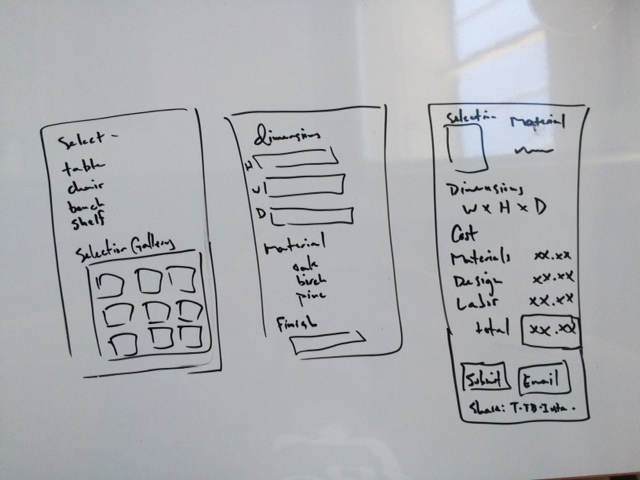 Select -
table
chair
bench
shelf
Selection Gallery
Dimensions
H
W
D
Material
oak
birch
pine
Finish
Selection Material
Dimensions
W x H x D
Cost
Materials xx.xx
Design xx.xx
Labor xx.xx
total xx.xx
Submit Email
Share: